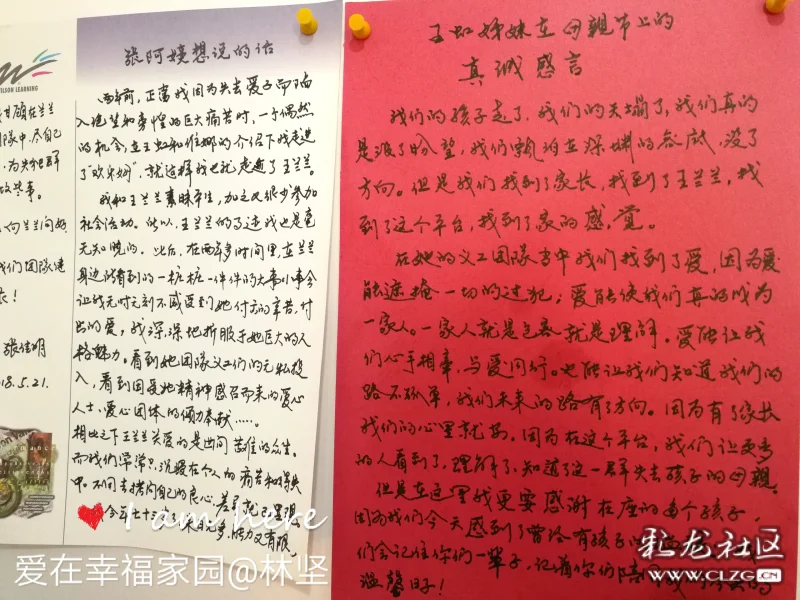 WILSON LEARNING
甘願在兰兰
队中，尽自己
，为失独群
故
，向兰兰问好
我们团队健
！
张佳明
18.5.21.
张阿姨想说的话
两年前，正当我因为失去爱子而陷
入绝望和旁惶的巨大痛苦时，一个偶然
的机会，在王虹和 的介绍下我走进
了"欢乐妈"，就这样我也就走进了王兰兰。
我和王兰兰素昧平生，加之又很少参加
社会活动。所以，王兰兰的事迹我也是毫
无知晓的。此后，在两年多时间里，在兰兰
身边所看到的一桩桩一件件的大事小事会
让我无时无刻不感受到她付出的辛苦，付
出的爱，我深深地折服于她巨大的人
格魅力。看到她团队义工们的无私投
入，看到因受她精神感召而来的爱心
人士，爱心团体的倾力奉献……
相比之下王兰兰关爱的是世间 的众生。
而我们 沉浸在个人的痛苦和得失
中。不间去拷问自己的良心，差
今年七十 来日无多，能力又有限，
王虹姊妹在母亲节上的
真诚感言
我们的孩子走了，我们的天塌了，我们真的
是没了盼望，我们飘泊在深渊的谷底，没了
方向。但是我们找到了家长，找到了王兰兰，找
到了这个平台，找到了家的感觉。
在她的义工团队当中我们找到了爱，因为爱
能遮掩一切的过犯；爱能使我们真的成为
一家人。一家人就是包容就是理解。爱能让我
们心手相牵，与爱同行。也能让我们知道我们的
路不孤单，我们未来的路有了方向。因为有了家长
我们的心里就 。因为在这个平台，我们让更多
的人看到了，理解了，知道了这一群失去孩子的母亲。
但是在这里我更要感谢在座的每个孩子，
因为我们今天感到了曾经有孩子
们会记住你们一辈子，记着你们陪
温馨日子！
I am here
爱在幸福家园@林坚
彩龙社区
WWW.CLZG.CN